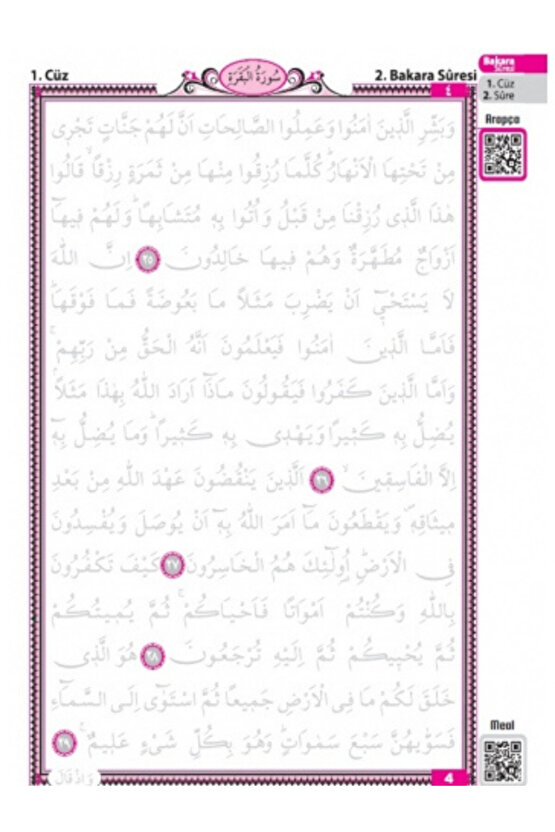 1. Cüz
سُورَةُ الْبَقَرَةِ
2. Bakara Sûresi
٤
وَبَشِّرِ الَّذ۪ينَ اٰمَنُوا وَعَمِلُوا الصَّالِحَاتِ اَنَّ لَهُمْ جَنَّاتٍ تَجْر۪ي
مِنْ تَحْتِهَا الْاَنْهَارُۜ كُلَّمَا رُزِقُوا مِنْهَا مِنْ ثَمَرَةٍ رِزْقًاۙ قَالُوا
هٰذَا الَّذ۪ي رُزِقْنَا مِنْ قَبْلُ وَاُتُوا بِه۪ مُتَشَابِهًاۜ وَلَهُمْ ف۪يهَٓا
اَزْوَاجٌ مُطَهَّرَةٌ وَهُمْ ف۪يهَا خَالِدُونَ ٢٥ اِنَّ اللّٰهَ
لَا يَسْتَحْي۪ٓ اَنْ يَضْرِبَ مَثَلًا مَا بَعُوضَةً فَمَا فَوْقَهَاۜ
فَاَمَّا الَّذ۪ينَ اٰمَنُوا فَيَعْلَمُونَ اَنَّهُ الْحَقُّ مِنْ رَبِّهِمْۚ
وَاَمَّا الَّذ۪ينَ كَفَرُوا فَيَقُولُونَ مَاذَٓا اَرَادَ اللّٰهُ بِهٰذَا مَثَلًاۢ
يُضِلُّ بِه۪ كَث۪يرًا وَيَهْد۪ي بِه۪ كَث۪يرًاۜ وَمَا يُضِلُّ بِه۪ٓ
اِلَّا الْفَاسِق۪ينَۙ ٢٦ اَلَّذ۪ينَ يَنْقُضُونَ عَهْدَ اللّٰهِ مِنْ بَعْدِ
م۪يثَاقِه۪ۖ وَيَقْطَعُونَ مَٓا اَمَرَ اللّٰهُ بِه۪ٓ اَنْ يُوصَلَ وَيُفْسِدُونَ
فِي الْاَرْضِۜ اُو۬لٰٓئِكَ هُمُ الْخَاسِرُونَ ٢٧ كَيْفَ تَكْفُرُونَ
بِاللّٰهِ وَكُنْتُمْ اَمْوَاتًا فَاَحْيَاكُمْۚ ثُمَّ يُم۪يتُكُمْ
ثُمَّ يُحْي۪يكُمْ ثُمَّ اِلَيْهِ تُرْجَعُونَ ٢٨ هُوَ الَّذ۪ي
خَلَقَ لَكُمْ مَا فِي الْاَرْضِ جَم۪يعًا ثُمَّ اسْتَوٰٓى اِلَى السَّمَٓاءِ
فَسَوّٰيهُنَّ سَبْعَ سَمٰوَاتٍۜ وَهُوَ بِكُلِّ شَيْءٍ عَل۪يمٌ۟ ٢٩
وَاِذْ قَالَ
4
Bakara
Sûresi
1. Cüz
2. Sûre
Arapça
Meal